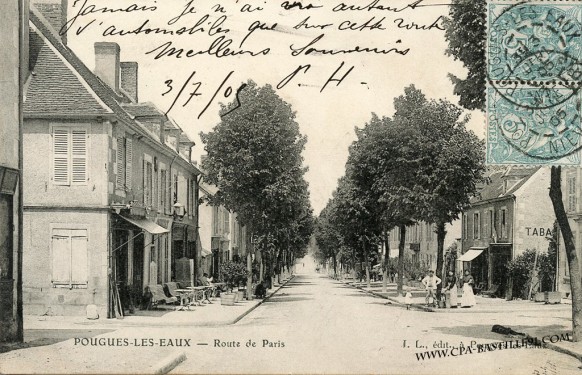 Jamais je n'ai vu autant
d'automobiles que sur cette route
Meilleurs Souvenirs
3/7/05 P. H.
POUGUES-LES-EAUX
TABA
POUGUES-LES-EAUX — Route de Paris
J. L., édit., à
www.CPA-BASTILLE91.com